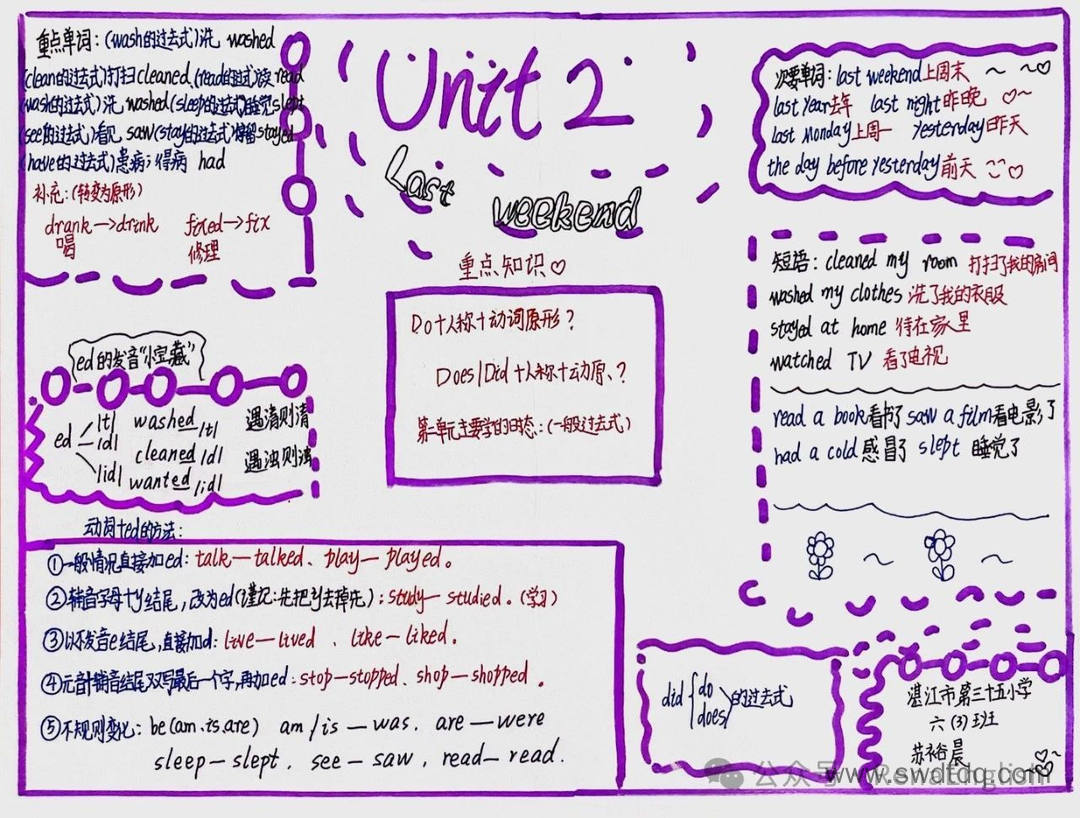 重点单词：(wash的过去式)洗 washed
(clean的过去式)打扫cleaned、(read的过式)读 read
(wash的过去式)洗 washed(sleep的过去式)睡觉slept
(see的过去式)看见 saw(stay的过去式)停留stayed
(have的过去式)患病；得病 had
补充：(转变为原形)
drank→drink fixed→fix
喝 修理
Unit 2
Last weekend
次要单词：last weekend上周末 ～ ～♡
last Year去年 last night昨晚 ♡～
last Monday上周一 Yesterday昨天
the day before Yesterday前天
重点知识♡
Do+人称+动词原形？
Does/Did+人称+动原、？
第二单元主要学的时态：(一般过去式)
短语：cleaned my room 打扫了我的房间
washed my clothes 洗了我的衣服
stayed at home 待在家里
watched TV 看了电视
read a book看书了 saw a film看电影了
had a cold感冒了 slept 睡觉了
ed的发音“小宝藏”
ed
/t/ washed /t/ 遇清则清
/d/ cleaned /d/ 遇浊则浊
/id/ wanted /id/
动词+ed的方法：
①一般情况直接加ed：talk—talked、play—played。
②辅音字母+y结尾，改为ed(谨记：先把y去掉先)：study—studied。(学习)
③以不发音e结尾，直接加d：live—lived 、like—liked。
④元音+辅音结尾双写最后一个字，再加ed：stop—stopped、shop—shopped。
⑤不规则变化：be(am.is.are) am/is—was. are—were
sleep—slept. see—saw, read—read.
did{do does}的过去式
湛江市第三十五小学
六(3)班
苏裕晨
公众号
www.swdfdq.com